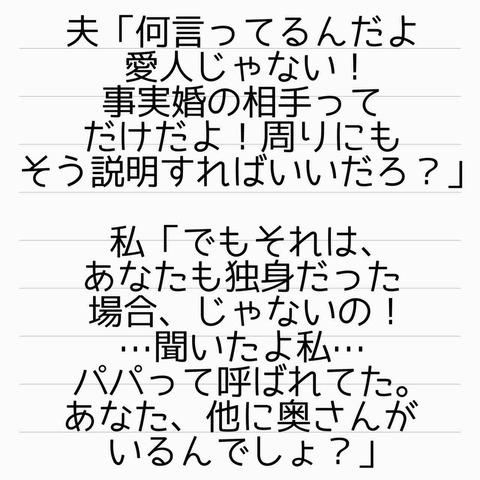 夫「何言ってるんだよ
愛人じゃない！
事実婚の相手って
だけだよ！周りにも
そう説明すればいいだろ？」
私「でもそれは、
あなたも独身だった
場合、じゃないの！
…聞いたよ私…
パパって呼ばれてた。
あなた、他に奥さんが
いるんでしょ？」